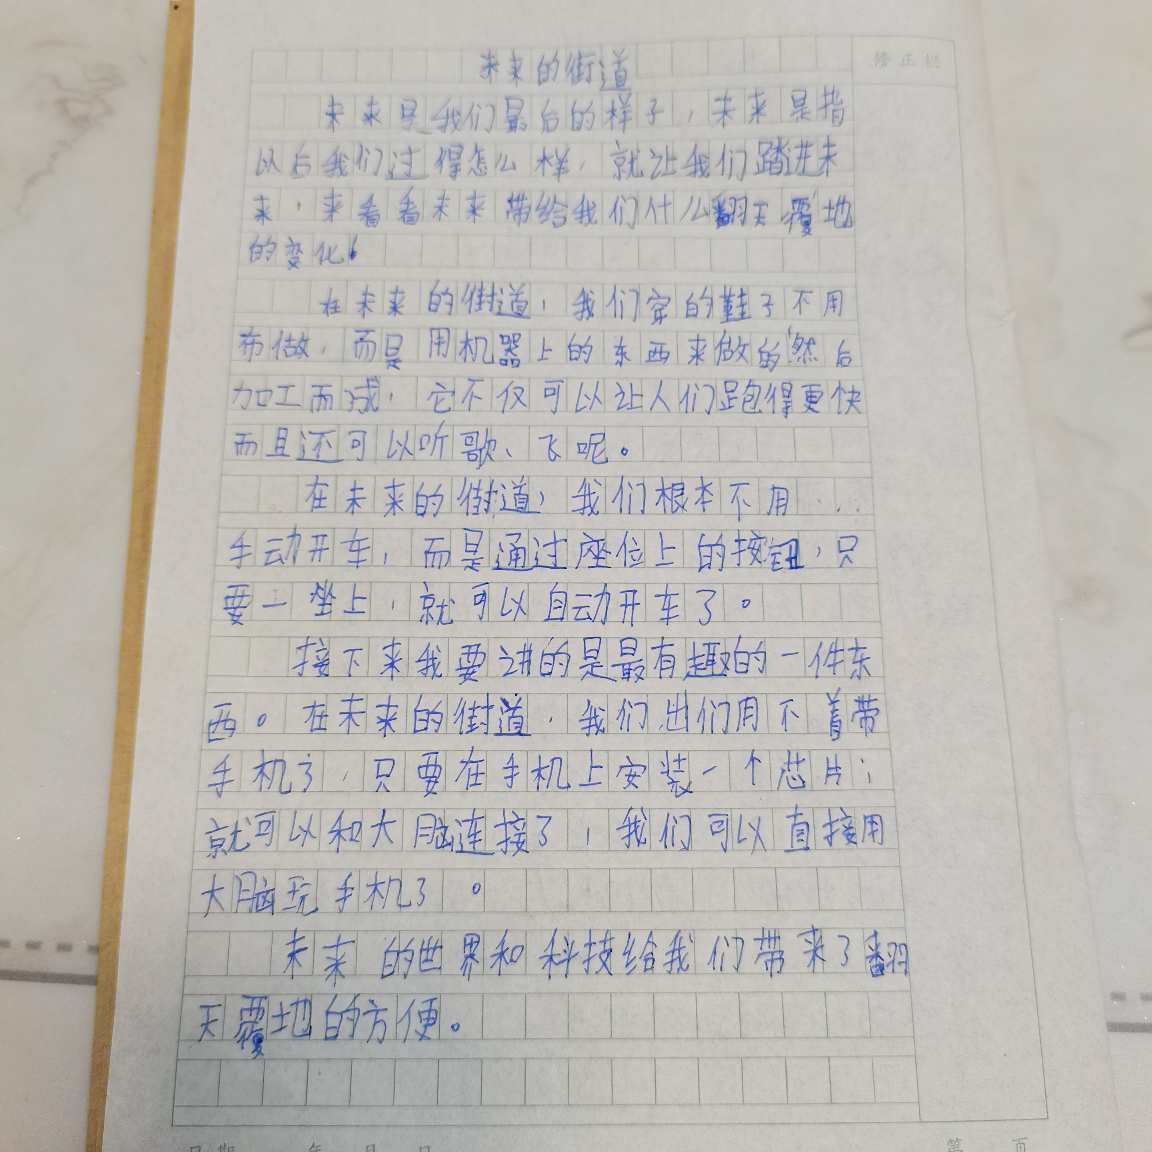 未来的街道
修正栏
未来是我们最后的样子，未来是指
以后我们过得怎么样，就让我们踏进未
来，来看看未来带给我们什么翻天覆地
的变化！
在未来的街道，我们穿的鞋子不用
布做，而是用机器上的东西来做的然后
加工而成，它不仅可以让人们跑得更快
而且还可以听歌、飞呢。
在未来的街道，我们根本不用
手动开车，而是通过座位上的按钮，只
要一坐上，就可以自动开车了。
接下来我要讲的是最有趣的一件东
西。在未来的街道，我们出们用不着带
手机了，只要在手机上安装一个芯片；
就可以和大脑连接了，我们可以直接用
大脑玩手机了。
未来的世界和科技给我们带来了翻
天覆地的方便。
日期 年 月 日 第 页